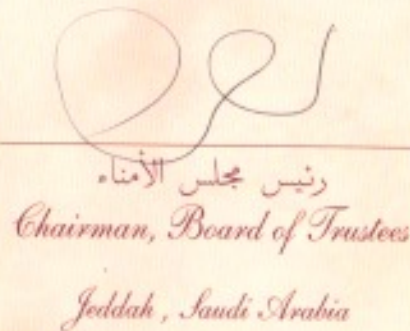 رئيس مجلس الأمناء
Chairman, Board of Trustees
Jeddah, Saudi Arabia